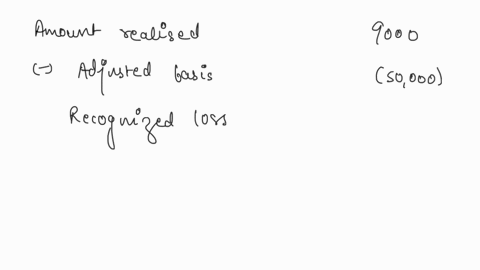 Amount realised 9000
(-) Adjusted basis (50,000)
Recognized loss